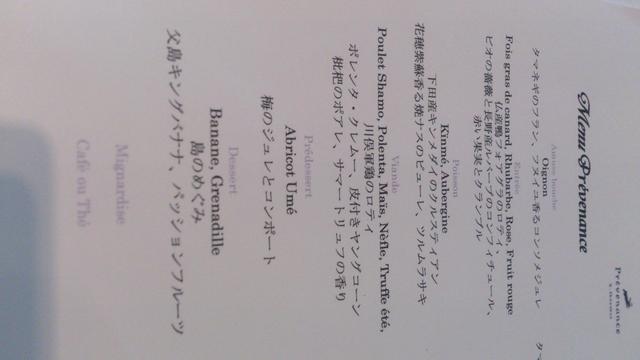 Prévenance
Menu Prévenance
Amuse bouche
Oignon
タマネギのフラン、フヌイユ香るコンソメジュレ
タマ
Entrée
Fois gras de canard, Rhubarbe, Rose, Fruit rouge
仏産鴨フォアグラのロティ、
ビオの薔薇と長野産ルバーブのコンフィチュール、
赤い果実とクランブル
Poisson
Kinmé, Aubergine
下田産キンメダイのクルスティアン
花穂紫蘇香る焼ナスのピューレ、ツルムラサキ
Viande
Poulet Shamo, Polenta, Maïs, Nèfle, Truffe été,
川俣軍鶏のロティ
ポレンタ・クレムー、皮付きヤングコーン
枇杷のポアレ、サマートリュフの香り
Prédessert
Abricot Umé
梅のジュレとコンポート
Dessert
Banane, Grenadille
島のめぐみ
父島キングバナナ、パッションフルーツ
Mignardise
Café ou Thé